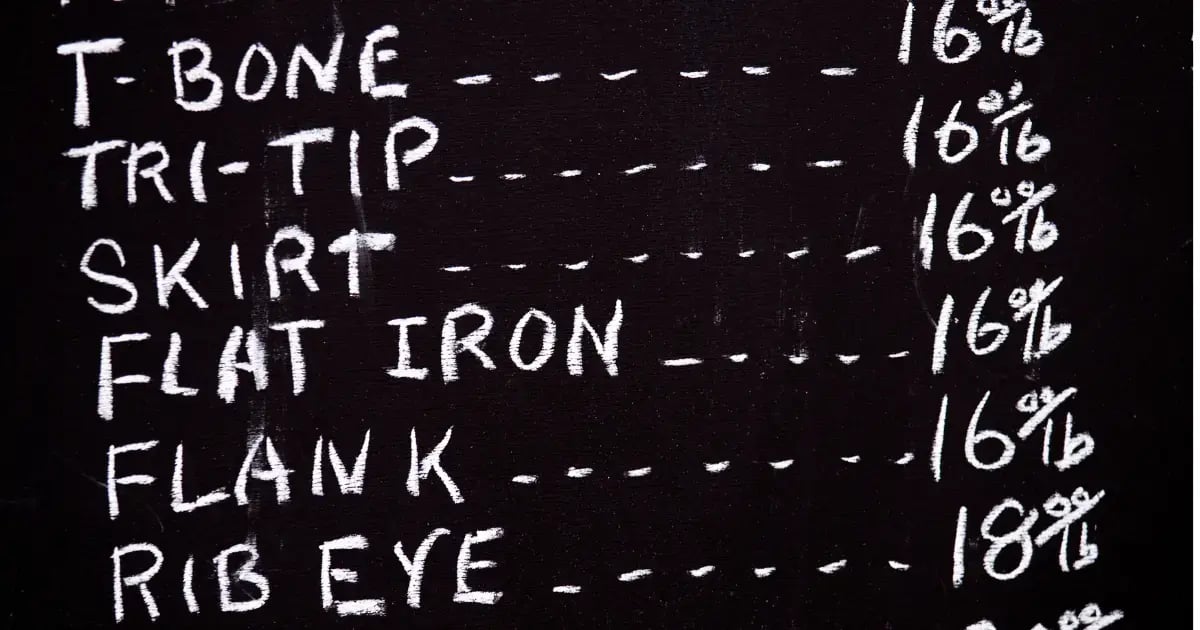 T-BONE ------ 16 00/lb
TRI-TIP ------- 16 00/lb
SKIRT -------- 16 00/lb
FLAT IRON ----- 16 00/lb
FLANK ------- 16 00/lb
RIB EYE ------ 18 00/lb